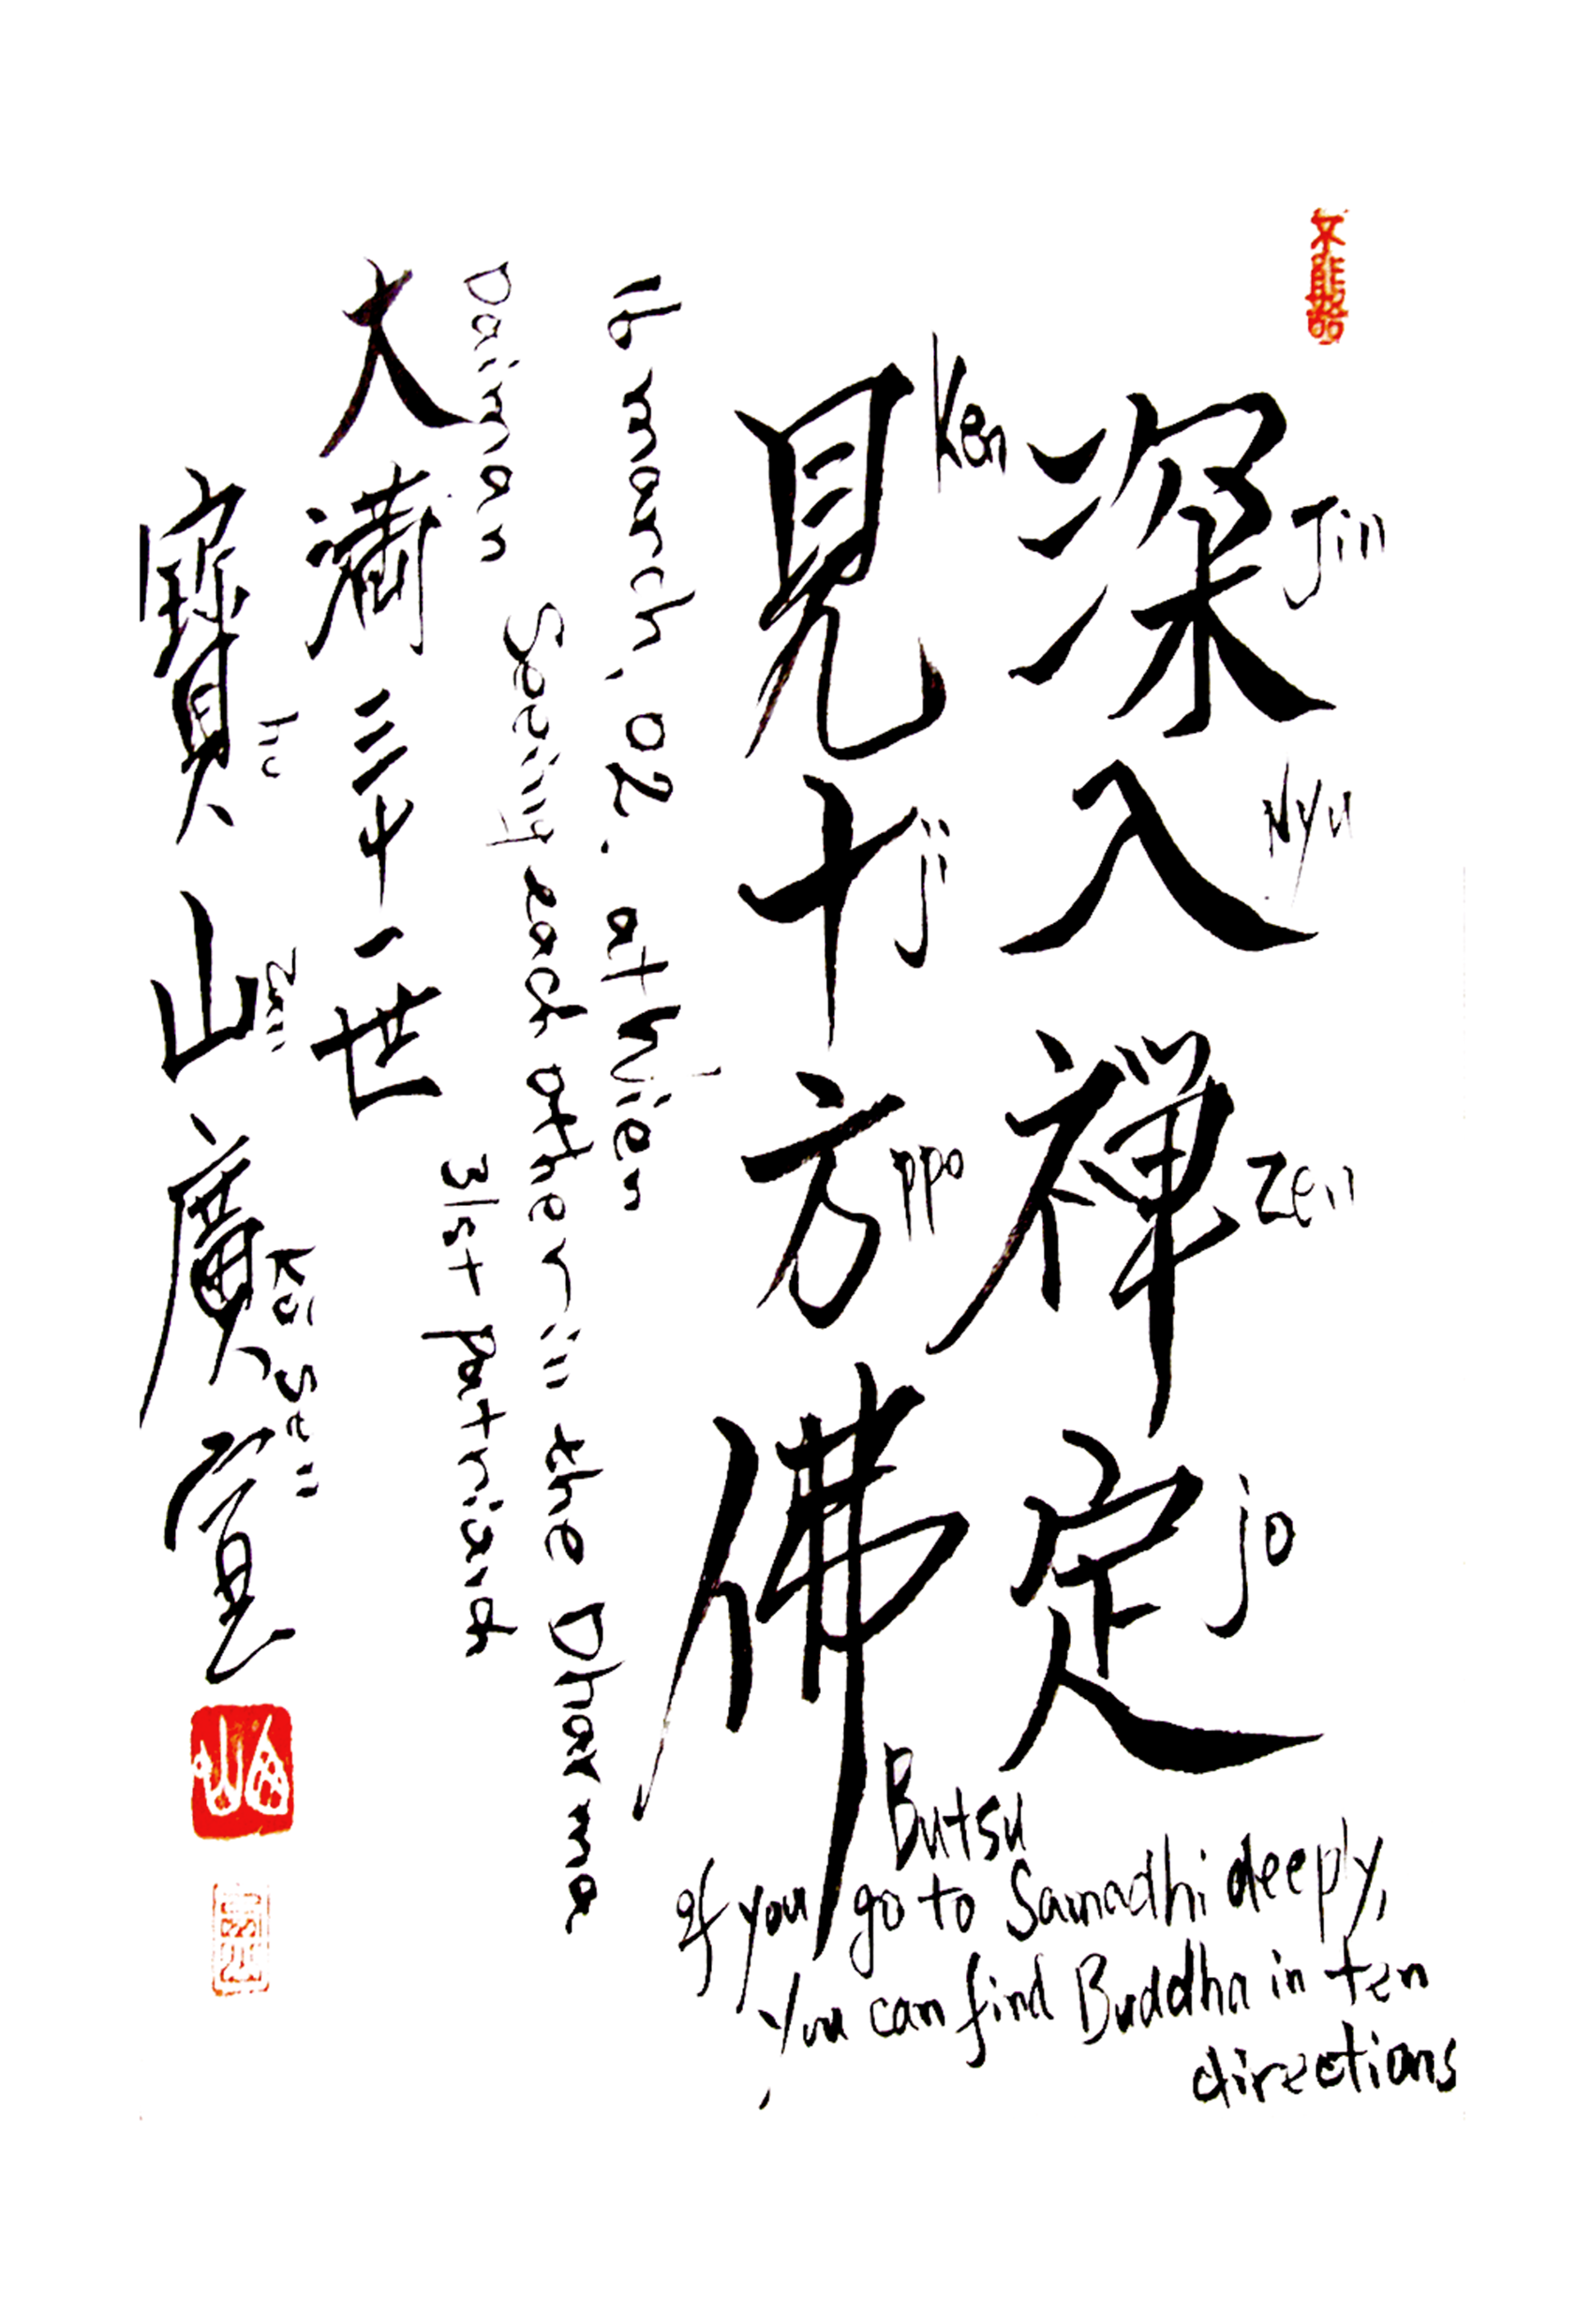 深入禅定
Jin Nyu Zen jo
見十方佛
Ken ji ppo Butsu
If you go to Samadhi deeply,
You can find Buddha in ten
directions
16 march, 02. at Wien
Seeing each other in the Dharma
Daiman 31st Patriarch
大満三十一世
寶山廣宣
Ho zan Ko sen